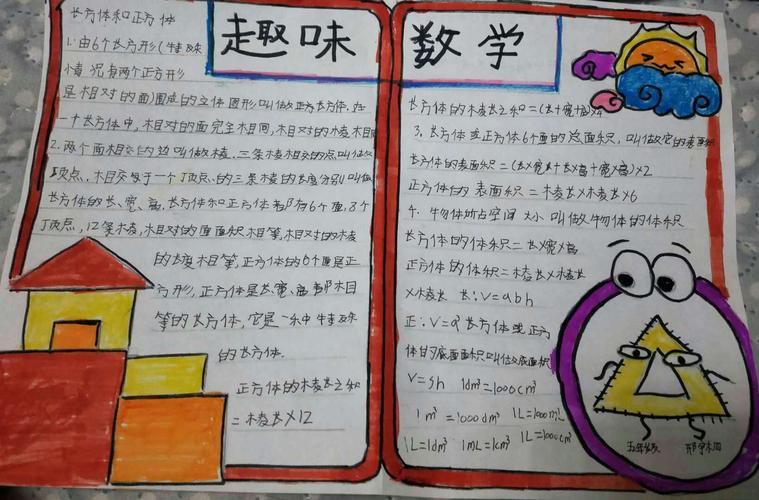 趣味数学
长方体和正方体
1.由6个长方形(特殊
情况有两个正方形
是相对的面)围成的立体图形叫做长方体.在
一个长方体中,相对的面完全相同,相对的棱相
2.两个面相交的边叫做棱.三条棱相交的点叫做
顶点.相交于一个顶点的三条棱的长度分别叫做
长方体的长、宽、高.长方体和正方体都有6个面,8个
顶点,12条棱,相对的面面积相等,相对的棱
的长度相等,正方体的6个面是正
方形,正方体是长、宽、高都相
等的长方体,它是一种特殊
的长方体.
正方体的棱长之和
=棱长×12
长方体的棱长之和=(长+宽+高)×4
3.长方体或正方体6个面的总面积,叫做它的表面积
长方体的表面积=(长×宽+长×高+宽×高)×2
正方体的表面积=棱长×棱长×6
4.物体所占空间大小叫做物体的体积
长方体的体积=长×宽×高
正方体的体积=棱长×棱长
×棱长 长:V=abh
正:V=a³长方体或正方
体的底面面积叫做底面积
V=sh 1dm³=1000cm³
1m³=1000dm³ 1L=1000mL
1L=1dm³ 1mL=1cm³ 1L=1000cm³
五年级